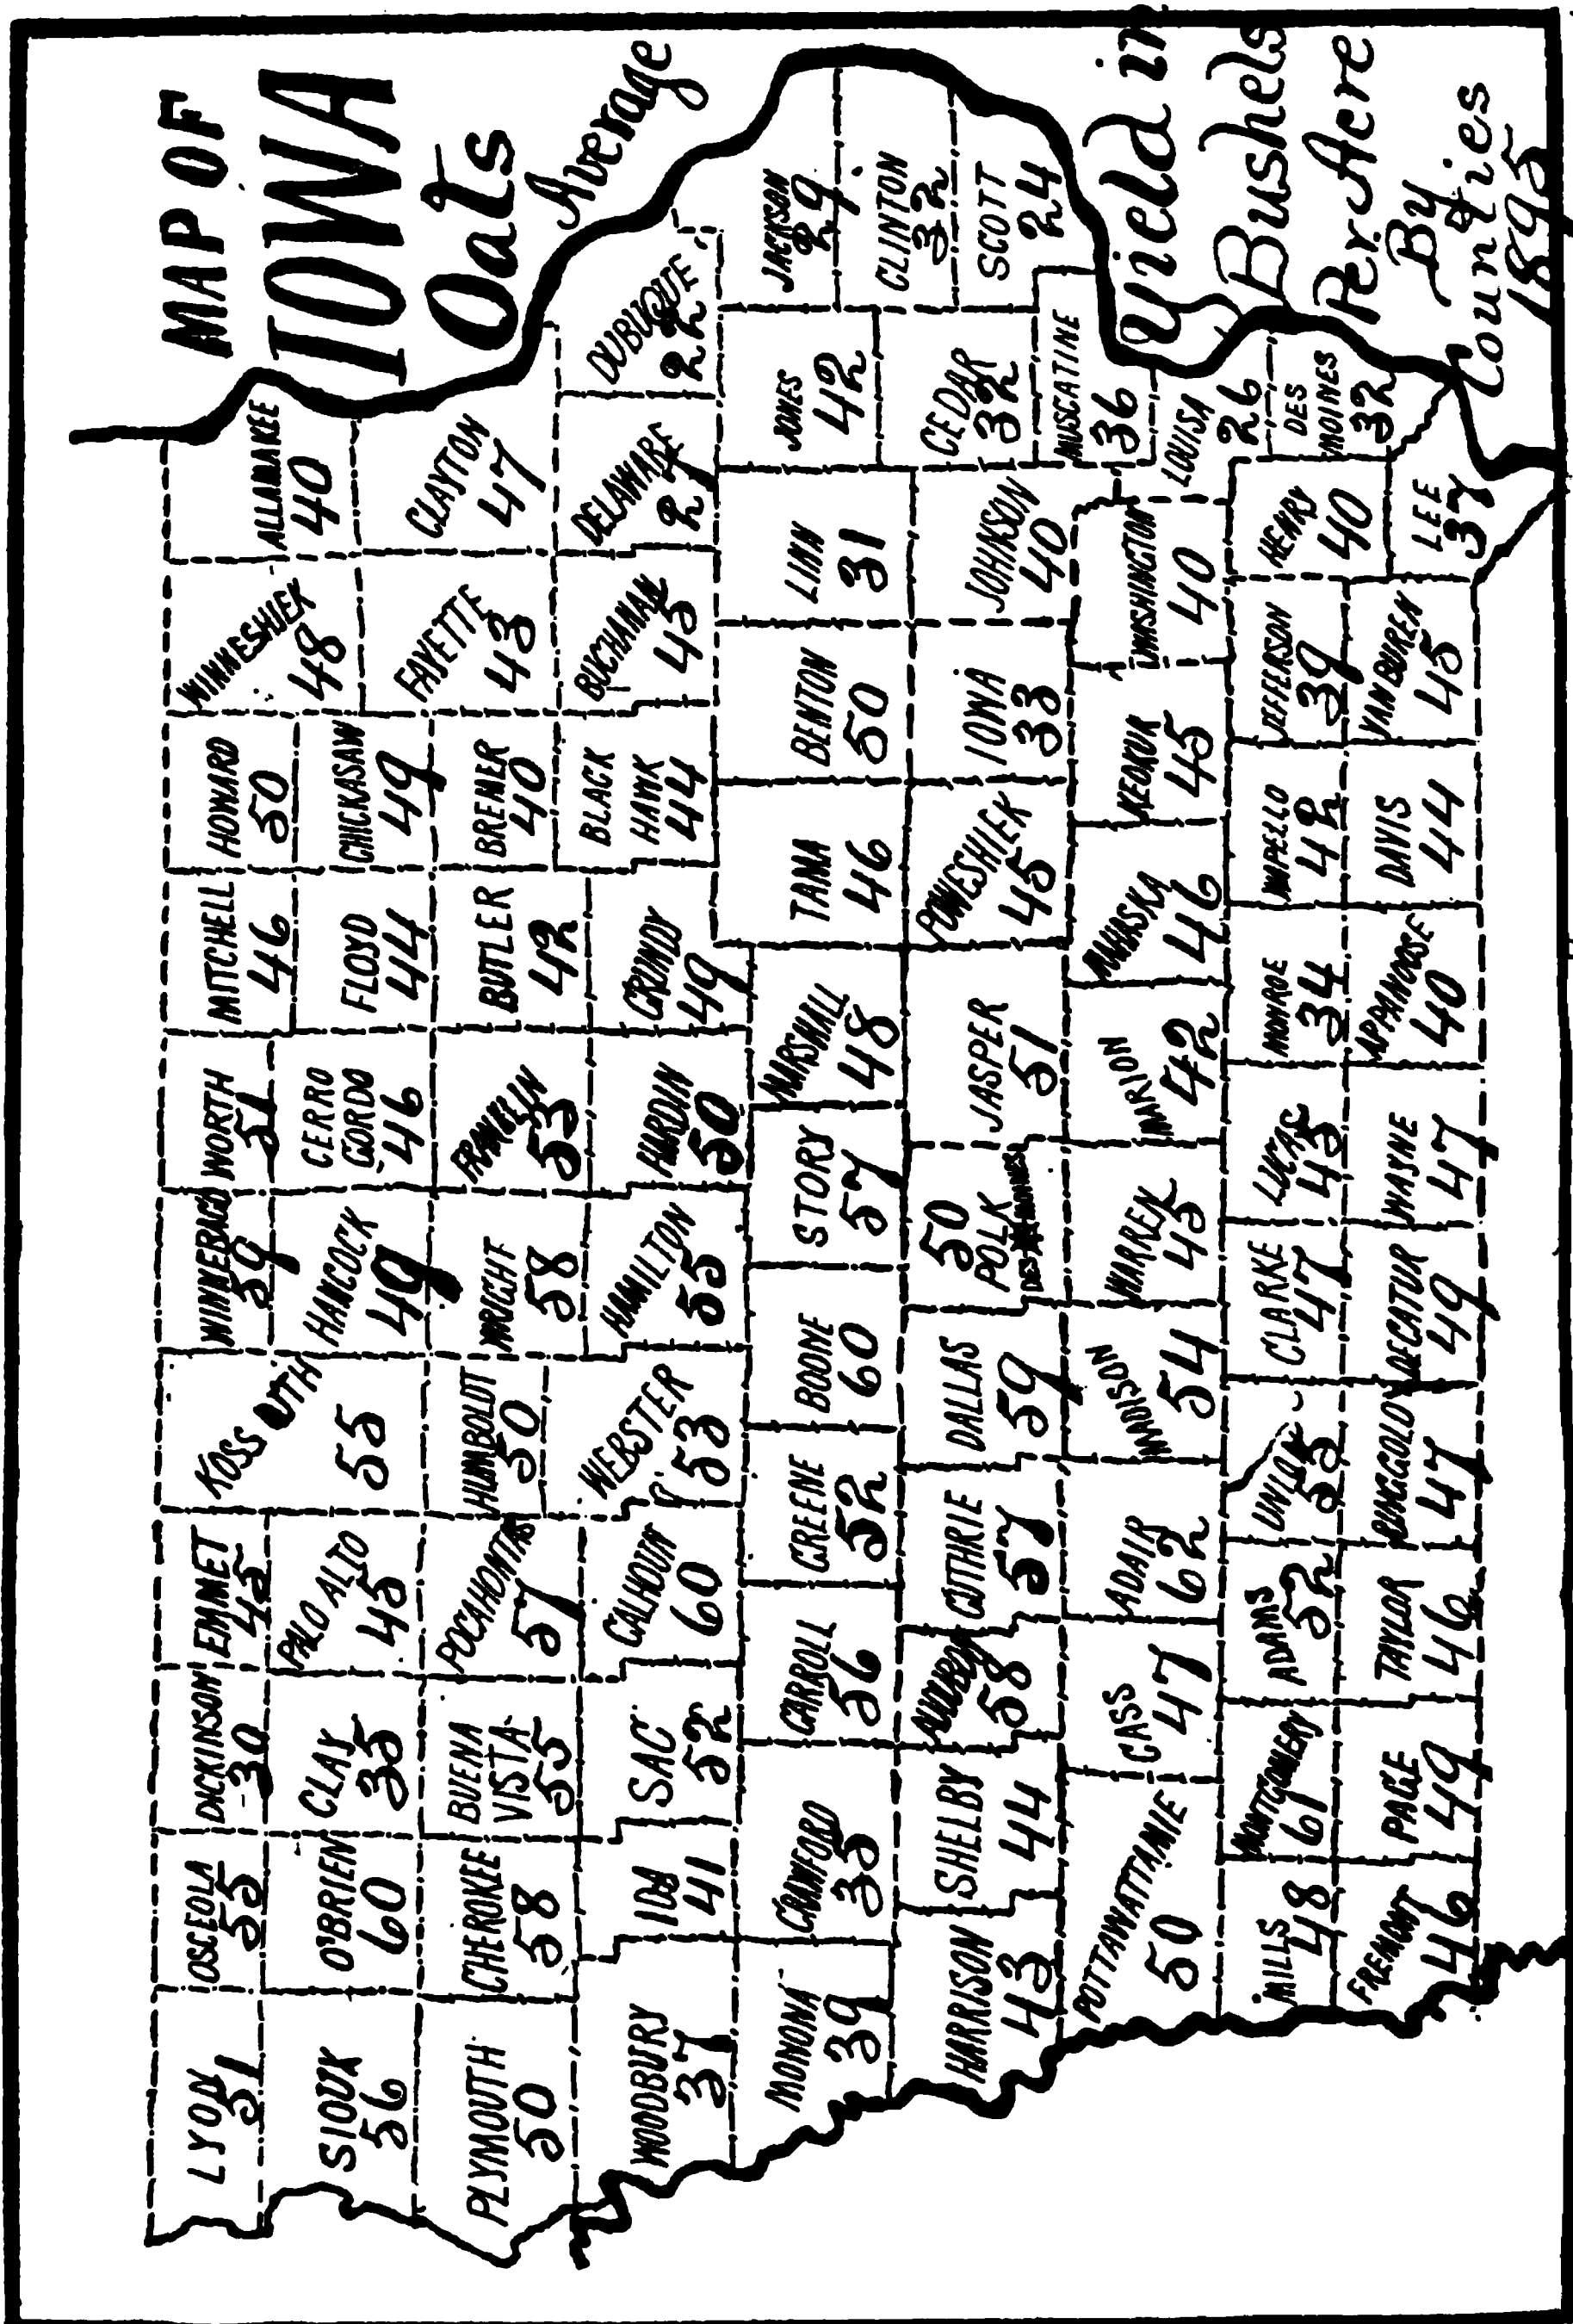 MAP OF
IOWA
Oats
Average
Yield in
Bushels
Per Acre
By
Counties
1895
LYON
51
OSCEOLA
55
DICKINSON
30
EMMET
45
KOSSUTH
55
WINNEBAGO
59
WORTH
51
MITCHELL
46
HOWARD
50
WINNESHIEK
48
ALLAMAKEE
40
SIOUX
56
O'BRIEN
60
CLAY
35
PALO ALTO
45
HANCOCK
49
CERRO
GORDO
46
FLOYD
44
CHICKASAW
49
FAYETTE
43
CLAYTON
47
PLYMOUTH
50
CHEROKEE
58
BUENA
VISTA
55
POCAHONTAS
57
HUMBOLDT
50
WRIGHT
58
FRANKLIN
55
BUTLER
42
BREMER
40
WOODBURY
37
IDA
41
SAC
52
CALHOUN
60
WEBSTER
53
HAMILTON
55
HARDIN
50
GRUNDY
49
BLACK
HAWK
44
BUCHANAN
45
DELAWARE
27
DUBUQUE
22
MONONA
39
CRAWFORD
35
CARROLL
56
GREENE
52
BOONE
60
STORY
57
MARSHALL
48
TAMA
46
BENTON
50
LINN
31
JONES
42
JACKSON
29
CLINTON
32
SCOTT
24
HARRISON
43
SHELBY
44
AUDUBON
58
GUTHRIE
57
DALLAS
59
50
POLK
DES MOINES
JASPER
51
POWESHIEK
45
IOWA
33
JOHNSON
40
CEDAR
32
MUSCATINE
36
POTTAWATTAMIE
50
CASS
47
ADAIR
62
MADISON
54
WARREN
45
MARION
42
MAHASKA
46
KEOKUK
45
WASHINGTON
40
LOUISA
26
MILLS
48
MONTGOMERY
61
ADAMS
52
UNION
55
CLARKE
47
LUCAS
45
MONROE
34
WAPELLO
42
JEFFERSON
39
HENRY
40
DES
MOINES
32
FREMONT
46
PAGE
49
TAYLOR
46
RINGGOLD
47
DECATUR
49
WAYNE
47
APPANOOSE
40
DAVIS
44
VAN BUREN
45
LEE
37